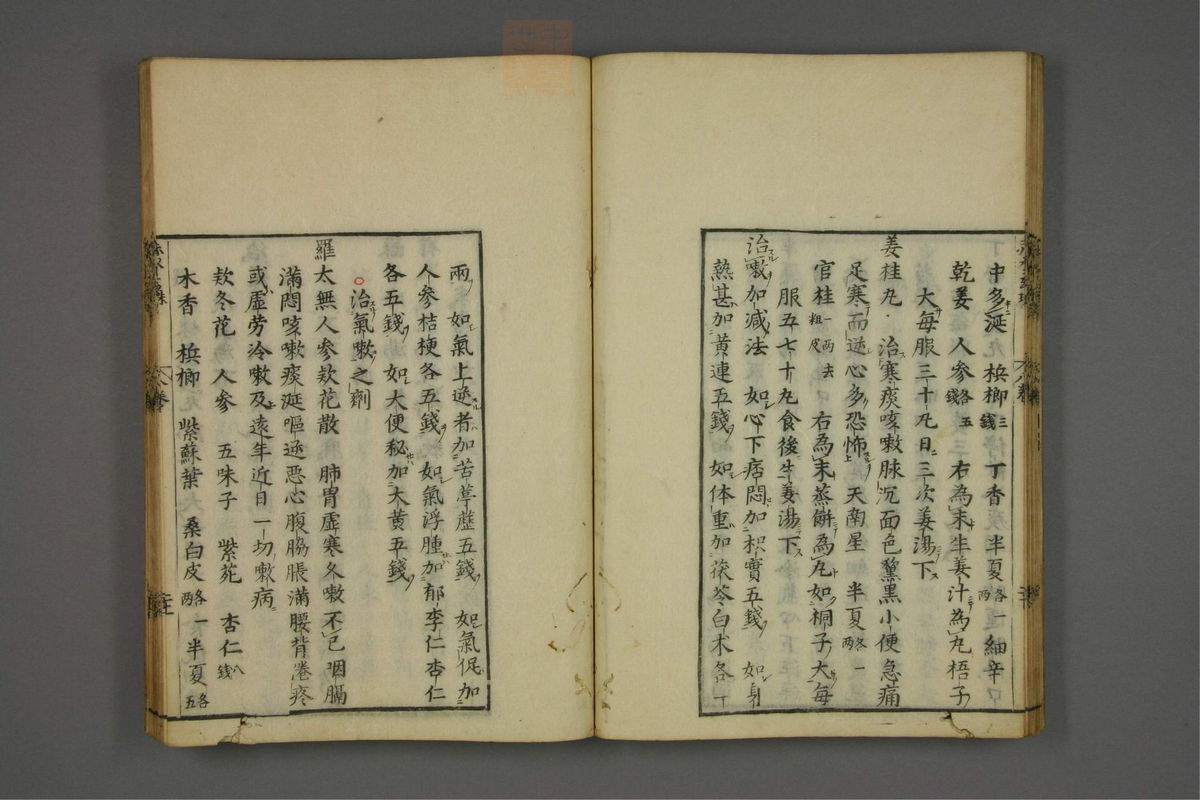 中多涎 梹榔三錢 丁香 半夏各一兩 細辛
乾姜 人參各五錢 右為末生姜汁為丸梧子
大每服三十丸日三次姜湯下
姜桂丸 治寒痰咳嗽脉沉面色黧黒小便急痛
足寒而逆心多恐怖 天南星 半夏各一兩
官桂一兩去粗皮 右為末蒸餅為丸如桐子大每
服五七十丸食後生姜湯下
治嗽加減法 如心下痞悶加枳實五錢 如身
熱甚加黄連五錢 如体重加茯苓白术各一
兩 如氣上逆者加苦葶藶五錢 如氣促加
人參桔梗各五錢 如氣浮腫加郁李仁杏仁
各五錢 如大便秘加大黄五錢
治氣嗽之劑
羅太無人參欵花散 肺胃虚寒久嗽不已咽膈
滿悶咳嗽痰涎嘔逆惡心腹脇脹滿腰背卷疼
或虚劳冷嗽及遠年近日一切嗽病
欵冬花 人參 五味子 紫菀 杏仁八錢
木香 梹榔 紫蘇葉 桑白皮各一兩 半夏各五